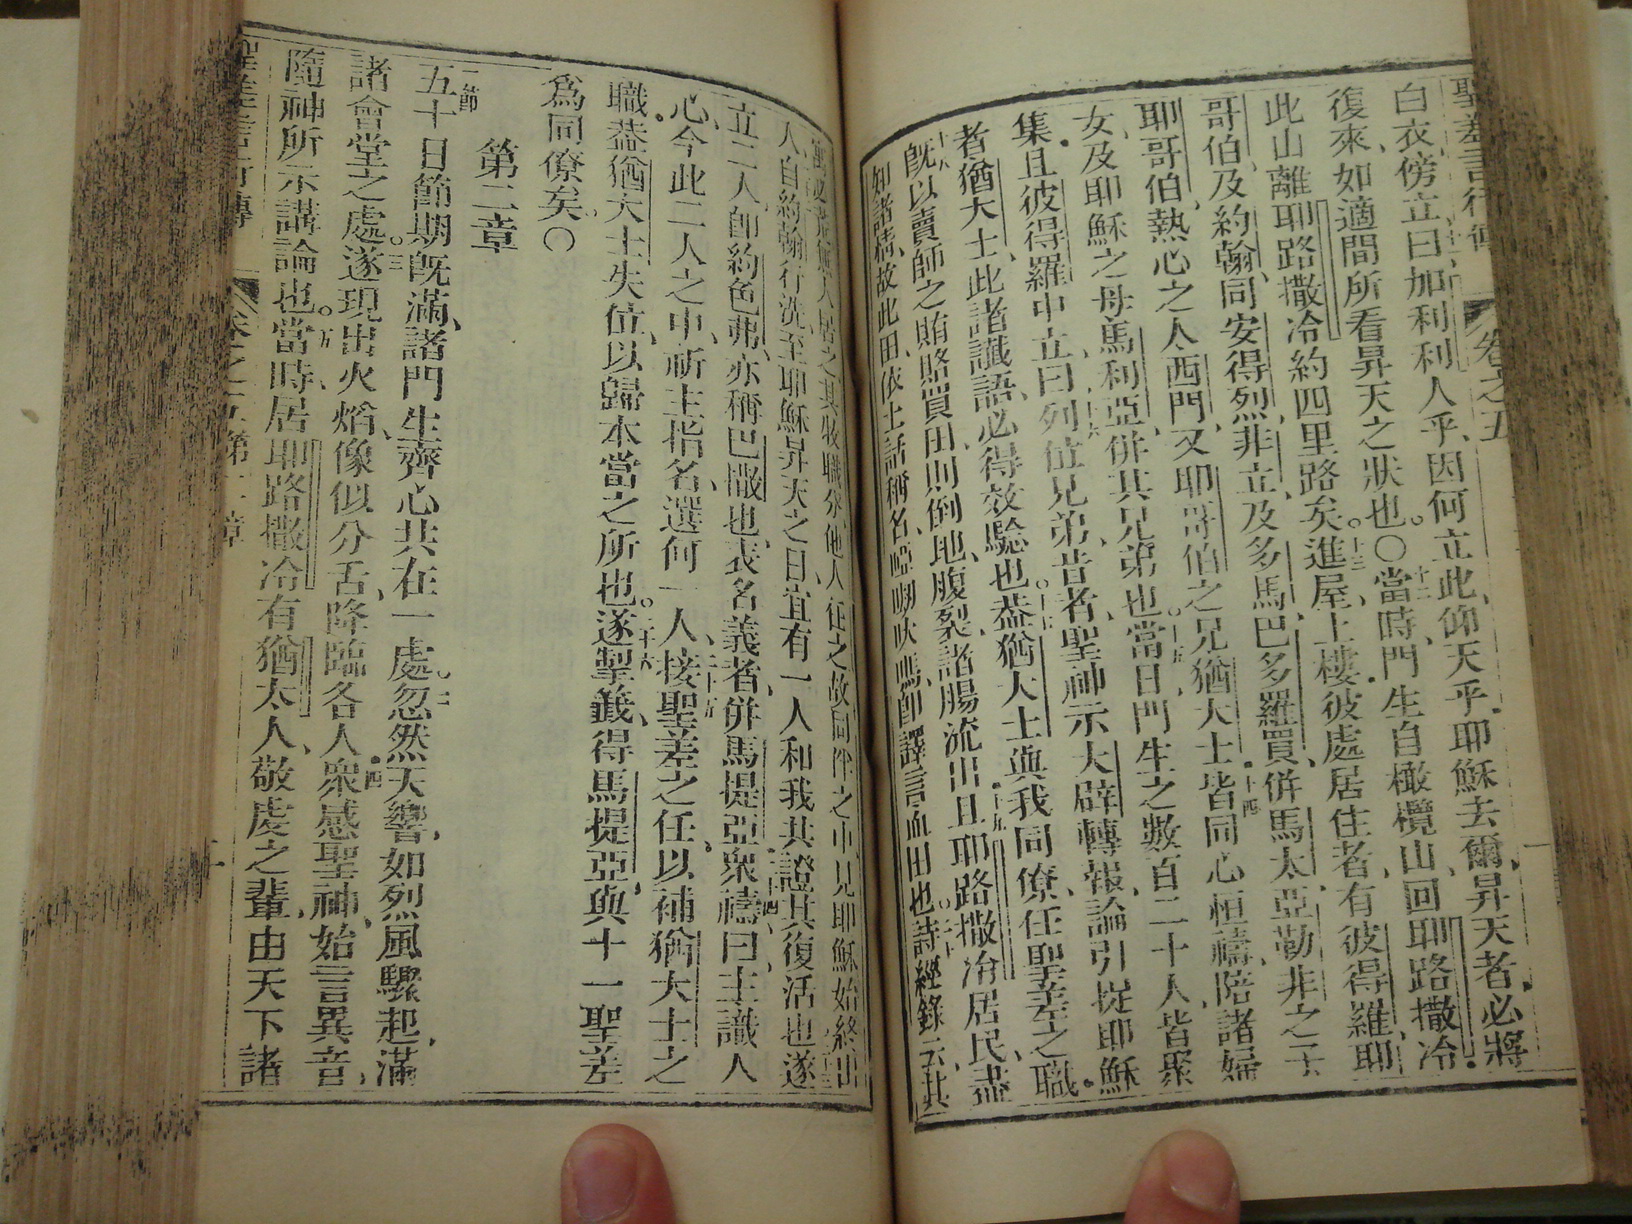 聖差言行傳 卷之五
白衣傍立曰加利利人乎因何立此仰天乎耶穌去爾昇天者必將
復來如適間所看昇天之狀也〇十二當時門生自橄欖山回耶路撒冷
此山離耶路撒冷約四里路矣十三進屋上樓彼處居住者有彼得羅耶
哥伯及約翰同安得烈非立及多馬巴多羅買併馬太亞勒非之子
耶哥伯熱心之人西門又耶哥伯之兄猶大士十四皆同心恒禱陪諸婦
女及耶穌之母馬利亞併其兄弟也十五當日門生之數百二十人皆聚
集且彼得羅中立曰十六列位兄弟昔者聖神示大辟轉報論引捉耶穌
者猶大士此諸讖語必得效驗也十七葢猶大士與我同僚任聖差之職
十八既以賣師之賄賂買田則倒地腹裂諸腸流出十九且耶路撒冷居民盡
知諸情故此田依土話稱名啞嘞吠嗎卽譯言血田也二十詩經錄云其
人居之其牧職分他人任之故同伴之中見耶穌始終出
入自約翰行洗至耶穌昇天之日宜有一人和我共證其復活也遂
立二人卽約色弗亦稱巴撒也表名義者併馬提亞二十四衆禱曰主識人
心今此二人之中祈主指名選何一人二十五接聖差之任以補猶大士之
職葢猶大士失位以歸本當之所也二十六遂掣籤得馬提亞與十一聖差
爲同僚矣〇
第二章
一節五十日節期既滿諸門生齊心共在一處二忽然天響如烈風驟起滿
諸會堂之處三遂現出火焰像似分舌降臨各人四衆感聖神始言異音
隨神所示講論也五當時居耶路撒冷有猶太人敬虔之輩由天下諸